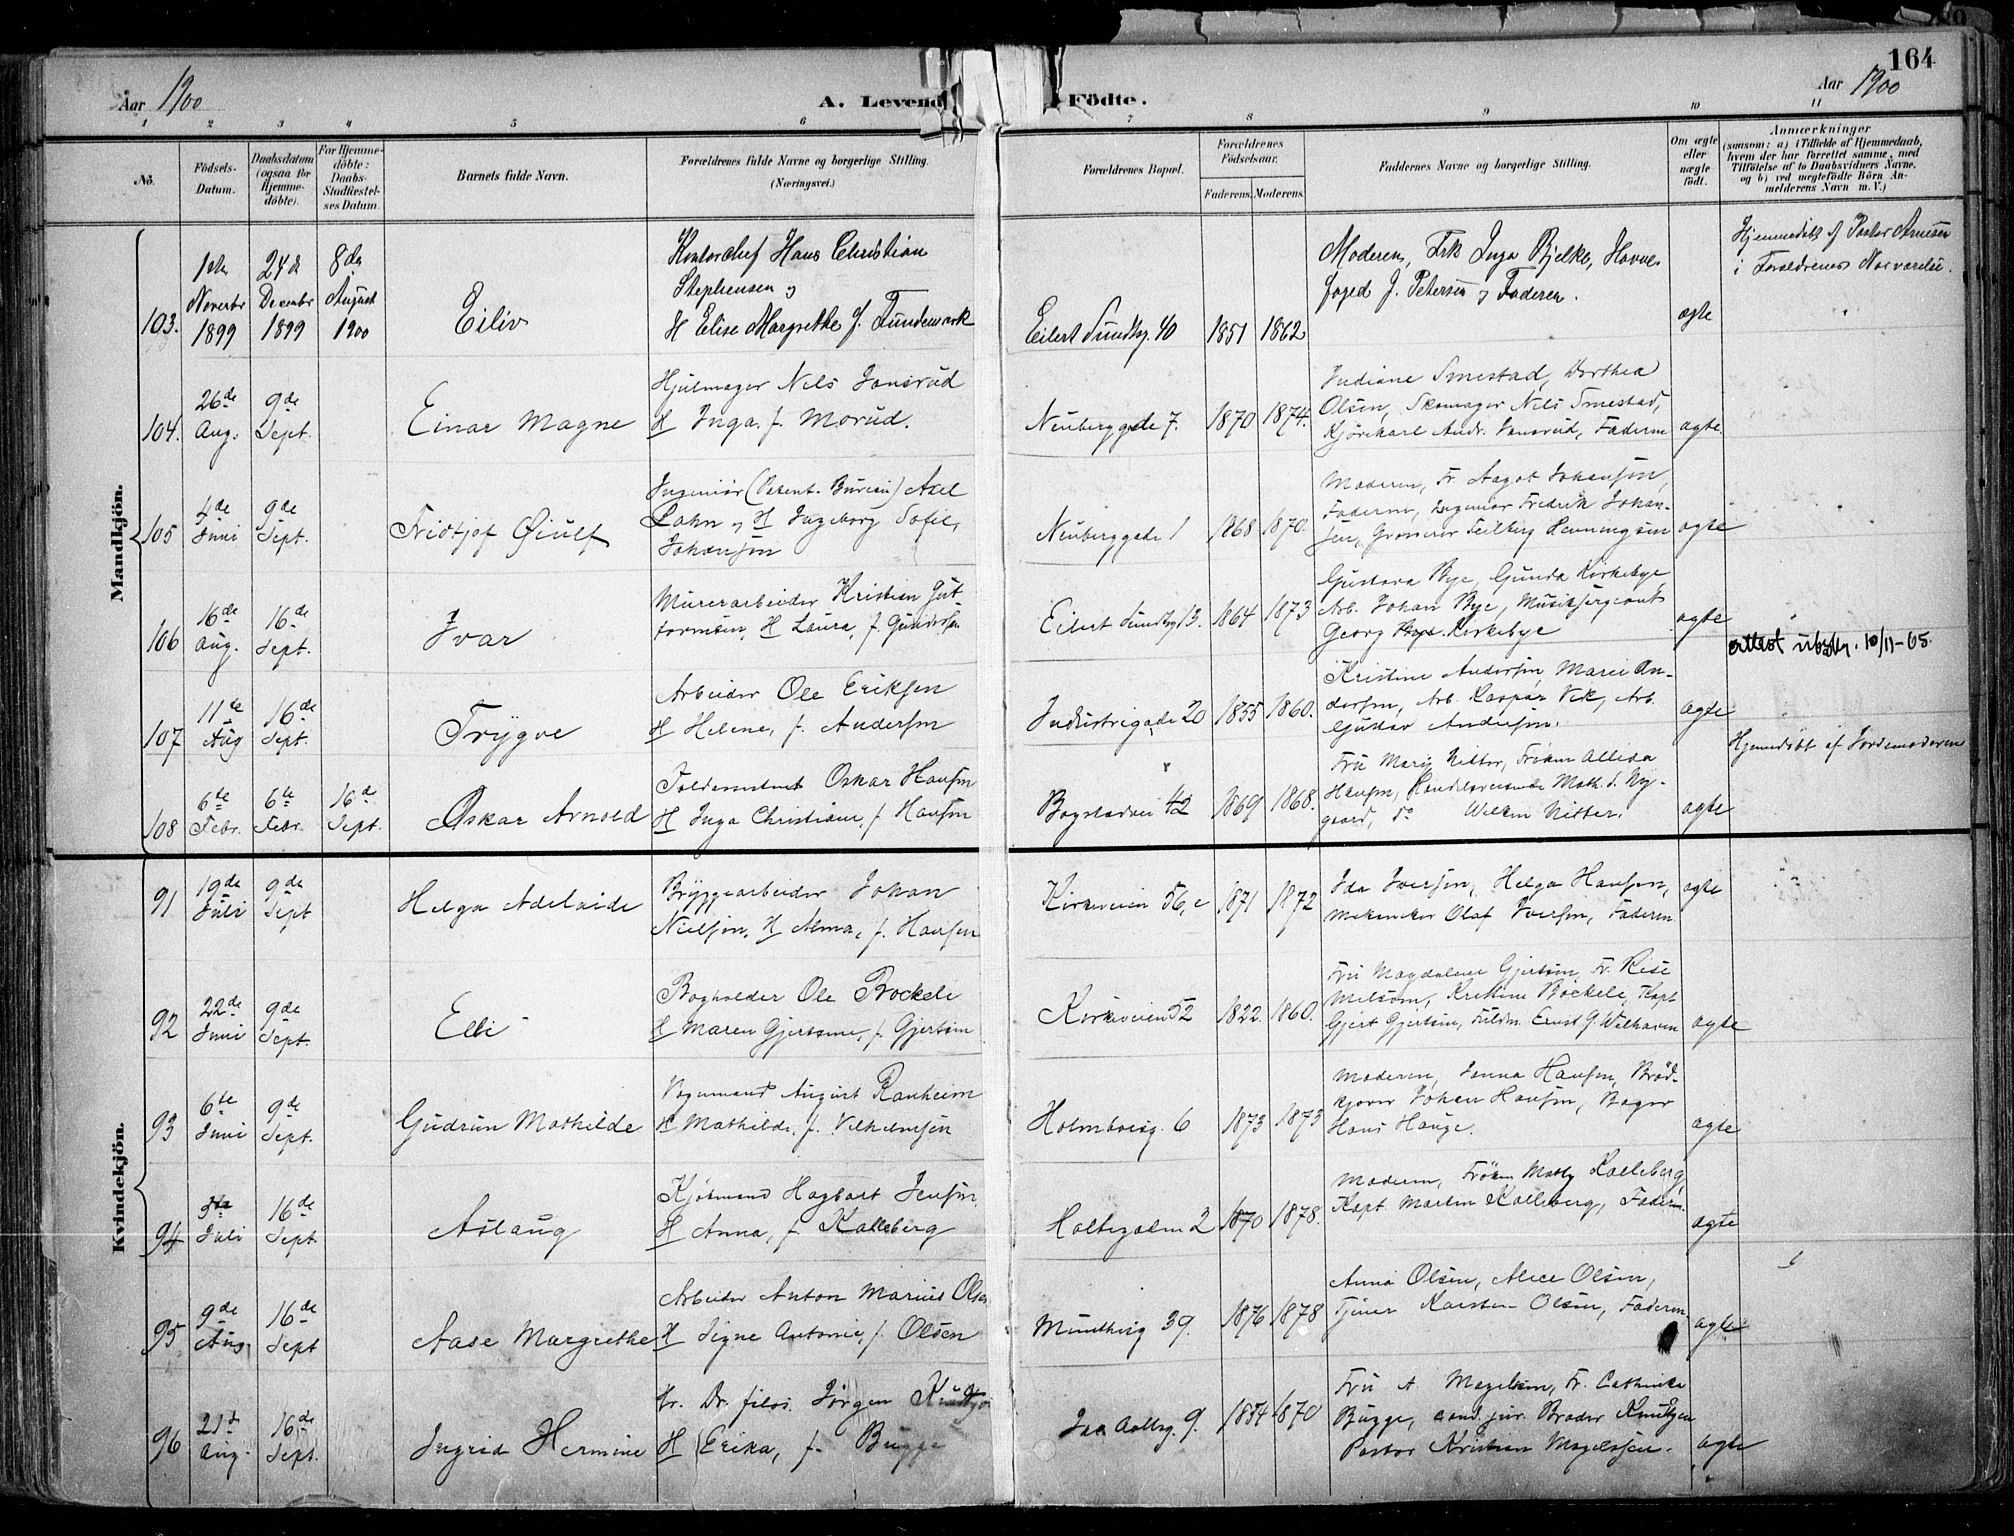 164
Aar 1900
A. Levend
Födte.
Aar 1900
1 2 3 4 5 6 7 8 9 10 11
No.
Födsels-
Datum.
Daabsdatum
(ogsaa for
Hjemme-
döbte).
For Hjemme-
döbte:
Daabs-
Stadfæstel-
ses Datum.
Barnets fulde Navn.
Forældrenes fulde Navne og borgerlige Stilling.
(Næringsvei.)
Forældrenes Bopæl.
Forældrenes
Födselsaar.
Faderens. Moderens.
Faddernes Navne og borgerlige Stilling.
Om ægte
eller
uægte
födt.
Anmærkninger
(saasom: a) i Tilfælde af Hjemmedaab,
hvem der har forrettet samme, med
Tilföielse af to Daabsvidners Navne.
og b) ved uægtefödte Börn An-
melderens Navn m. V.)
Mandkjön.
103.
1ste
Novembr
1899
24de
Decembr
1899
8de
August
1900
Eiliv
Kontorchef Hans Christian
Stephensen og
H Elise Margrethe f. Fundemark
Eilert Sundtsg. 40
1851
1862
Moderen, Frk Inga Bjelke, Havne-
foged J. Petersen og Faderen.
ægte
Hjemmedøbt af Pastor Arnesen
i Forældrenes Nærværelse.
104.
26de
Aug.
9de
Sept.
Einar Magne
Hjulmager Nels Jonsrud
H Inga f. Morud.
Neuberggade 7.
1870
1874.
Indiane Smestad, Dorthea
Olsen, Skomager Nils Smestad,
Kjørekarl Andr. Jonsrud, Faderen
ægte
105
4de
Juni
9de
Sept.
Fridtjof Øiulf
Ingeniør (Patent. Bureau) Axel
Lahn og H Ingeborg Sofie,
Johansen
Neuberggade 1
1868
1870.
Moderen, Fr. Aagot Johansen,
Faderen, Ingeniør Fredrik Johan-
sen, Grosserer Feilberg Henningsen
ægte
106
16de
Aug.
16de
Sept.
Ivar
Murerarbeider Kristian Gut-
tormsen, H Laura, f. Gundersen
Eilert Sundtsg 13.
1864
1873
Gustava Bye, Gunda Kirkebye,
Arb. Johan Bye, Musiksergeant
Georg Kirkebye
ægte
attest utstedt. 10/11-65.
107
11te
Aug
16de
Sept.
Trygve
Arbeider Ole Eriksen
H Helene, f. Andersen
Industrigade 20
1855
1860.
Kristine Andersen, Marie An-
dersen, Arb. Kaspar Vik, Arb.
Gustav Andersen.
ægte
108
6te
Febr.
6te
Febr.
16de
Sept.
Oskar Arnold
Toldassistent Oskar Hansen
H Inga Christiane, f. Hansen
Bogstadvei 42
1869
1868.
Fru Marie Nilter, Frøken Allida
Hansen, Handelsreisende Math. S. Ny-
gaard, do Wilken Nitter.
ægte
Hjemmdøbt af Jordemoderen
Kvindekjön.
91
19de
Juli
9de
Sept
Helga Adelaide
Bryggearbeider Johan
Nielsen, H Alma, f. Hansen
Kirkeveien 56, c
1871
1872
Ida Iversen, Helga Hansen,
Mekaniker Olaf Iversen, Faderen
ægte
92
22de
Juni
9de
Sept.
Elli
Bogholder Ole Bockele
H Maren Gjertsine, f. Gjertsen
Kirkeveien 52
1822.
1860.
Fru Magdalene Gjertsen, Fr. Rise
Milsom, Kristine Bøckele, Kapt
Gjert Gjertsen, Fuldm. Ernst G. Welhaven
ægte
93
6te
Juni
9de
Sept.
Gudrun Mathilde
Vognmand August Ranheim
H Mathilde, f. Vilhelmsen
Holmboesg. 6
1873
1873
Moderen, Janna Hansen, Brød-
kjører Johan Hansen, Bager
Hans Hauge.
ægte
94
3te
Juli
16de
Sept
Aslaug
Kjøbmand Hagbart Jensen.
H Anna, f. Kalleberg
Holtegaden 2
1870
1878.
Moderen, Frøken Matly Kalleberg,
Kapt Martin Kalleberg, Faderen.
ægte
95
9de
Aug
16de
Sept
Aase Margrethe
Arbeider Anton Marius Olsen
H Signe Antonie, f. Olsen
Mundtesg 39.
1876
1878
Anna Olsen, Alice Olsen,
Tjener Karsten Olsen, Faderen
ægte
96
21de
Aug.
16de
Sept.
Ingrid Hermine
Hr. Dr. filos. Jörgen
H Erika, f. Bugge
Jac Aallsg. 9.
1854
1870
Fru A. Magelssen, Fr. Cathinka
Bugge, cand. jur. Broder Knudtzen
Pastor Kristian Magelssen.
ægte